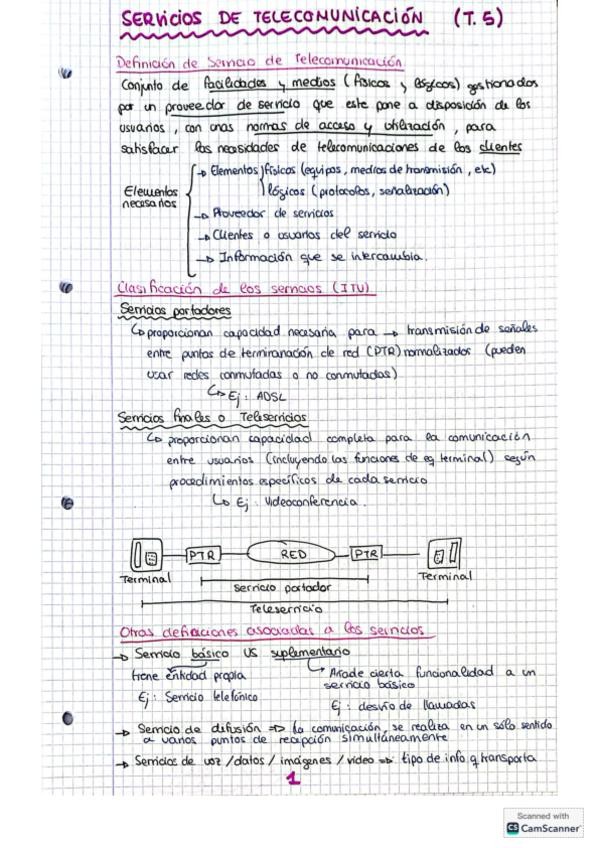 SERVICIOS DE TELECOMUNICACIÓN (T.5)
Definición de Servicio de Telecomunicación
Conjunto de facilidades y medios (físicos y lógicos) gestionados
por un proveedor de servicio que este pone a disposición de los
usuarios, con unas normas de acceso y utilización, para
satisfacer las necesidades de telecomunicaciones de los clientes
Elementos necesarios
→ Elementos físicos (equipos, medios de transmisión, etc)
lógicos (protocolos, señalización)
→ Proveedor de servicios
→ Clientes o usuarios del servicio
→ Información que se intercambia.
Clasificación de los servicios (ITU)
Servicios portadores
↳ proporcionan capacidad necesaria para → transmisión de señales
entre puntos de termiranación de red (PTR) normalizados (pueden
usar redes conmutadas o no conmutadas)
↳ Ej: ADSL
Servicios finales o Teleservicios
↳ proporcionan capacidad completa para la comunicación
entre usuarios (incluyendo las funciones de eq terminal) según
procedimientos específicos de cada servicio
↳ Ej: Videoconferencia.
PTR RED PTR
Terminal Terminal
servicio portador
Teleservicio
Otras definiciones asociadas a los servicios
→ Servicio básico VS suplementario
tiene entidad propia
Ej: Servicio telefónico
↳ Añade cierta funcionalidad a un
servicio básico
Ej: desvío de llamadas
→ Servicio de difusión => la comunicación se realiza en un sólo sentido
a varios puntos de recepción simultáneamente
→ Servicios de voz / datos / imágenes / video => tipo de info q transporta
1
Scanned with
CS CamScanner